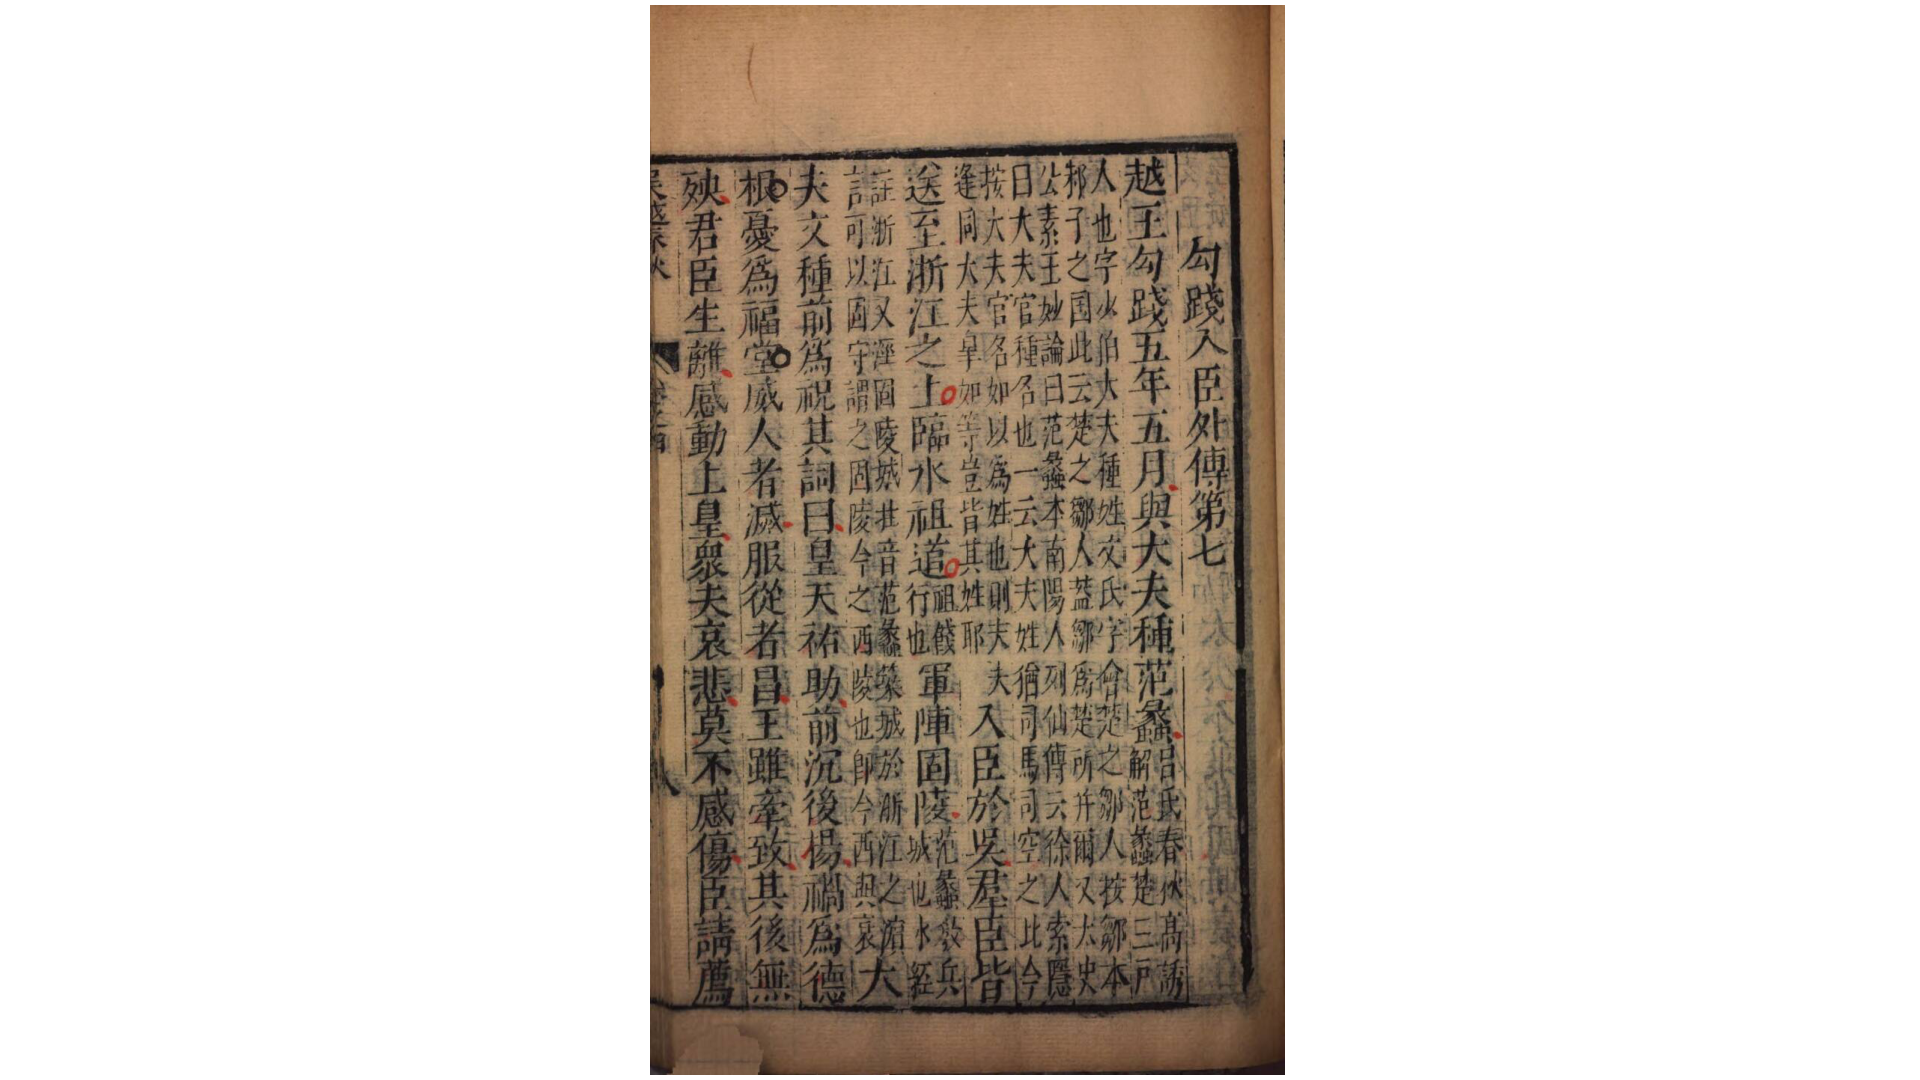 勾踐入臣外傳第七
越王勾踐五年五月與大夫種范蠡呂氏春秋高誘解范蠡楚三戶
人也字少伯大夫種姓文氏字會楚之鄒人按鄒本
邾子之国此云楚之鄒人蓋鄒爲楚所并爾又太史
公素王妙論曰范蠡本南陽人列仙傳云徐人索隱
曰大夫官種名也一云大夫姓猶司馬司空之比今
按大夫官名如以爲姓也則夫夫逢同大夫皐如等豈皆其姓耶入臣於吳群臣皆
送至浙江之上臨水祖道祖餞行也軍陣固陵范蠡敎兵城也水經
註浙江又逕固陵城北昔范蠡築城於浙江之濵言可以固守謂之固陵今之西陵也即今西興哀大
夫文種前爲祝其詞曰皇天祐助前沉後楊禍爲德
根憂爲福堂威人者滅服從者昌王雖牽致其後無
殃君臣生離感動上皇衆夫哀悲莫不感傷臣請薦
吳越春秋